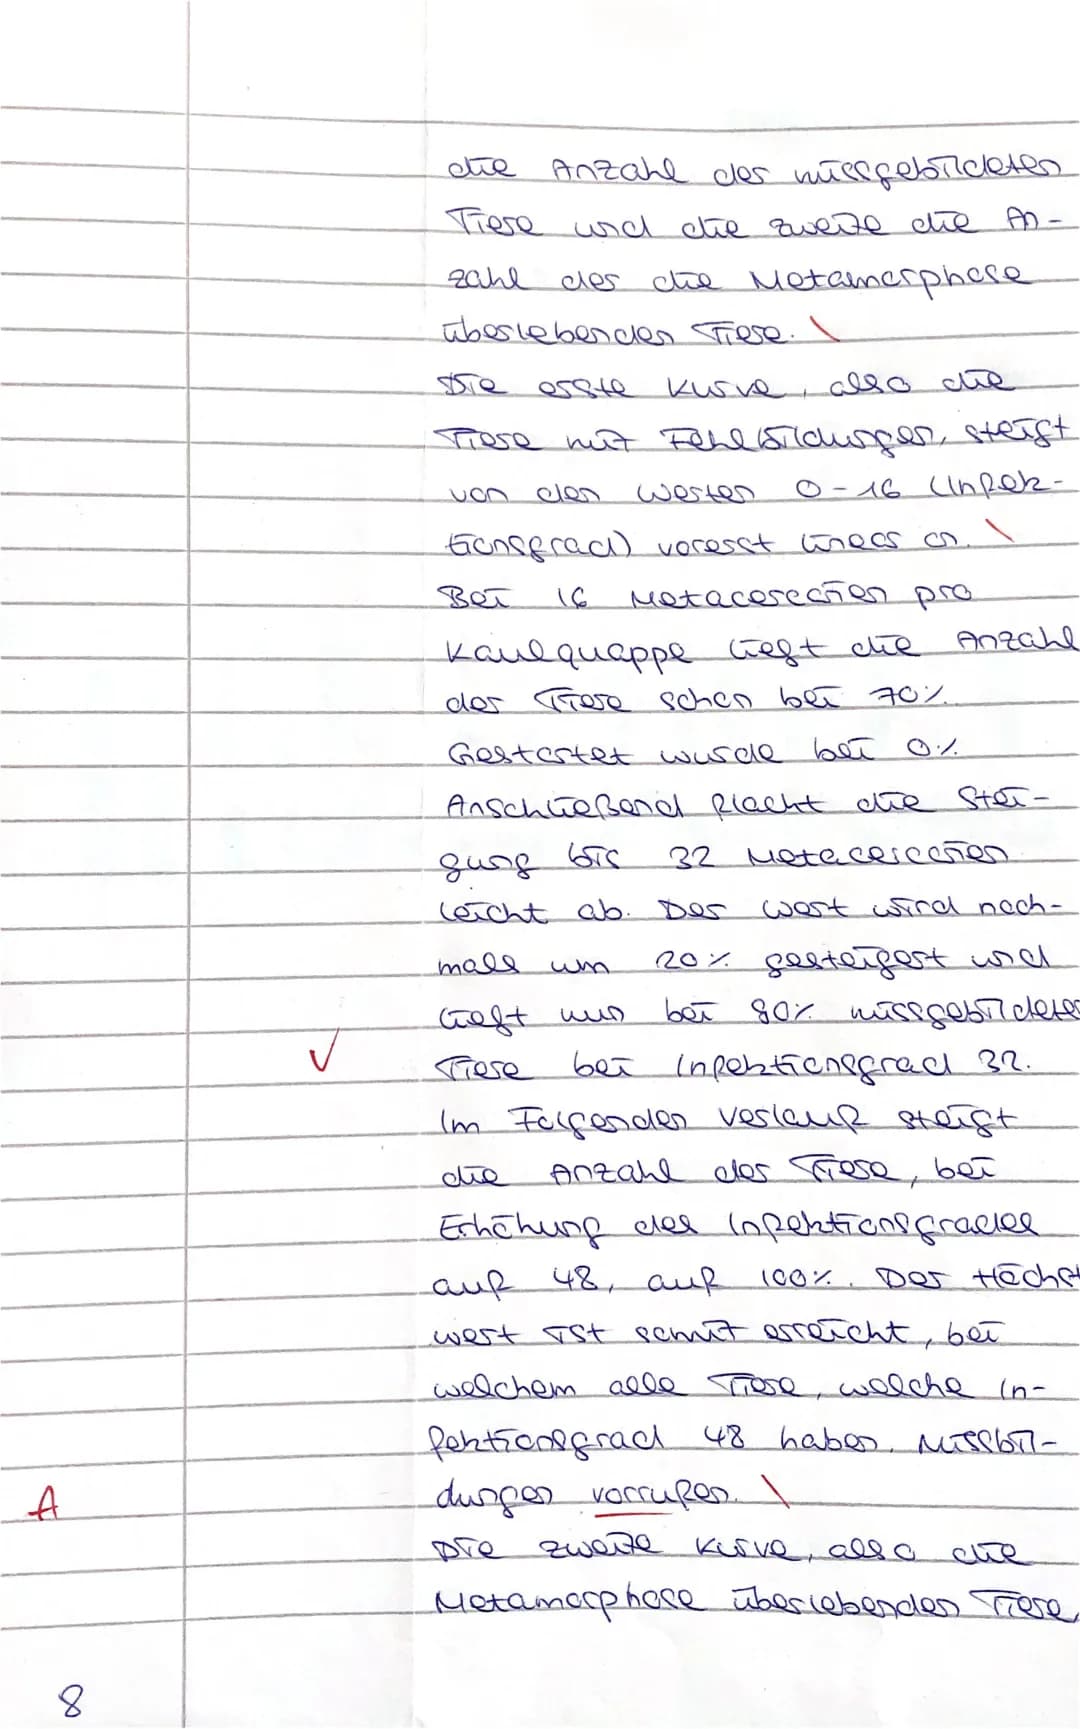 die Anzahl der missgebildeten
Tiere und die zweite die An-
zahl der die Metamorphose
überlebenden Tiere.
Die erste Kurve, also die
Tiere mit Fehlbildungen, steigt
von den Werten 0-16 (Infek-
tionsgrad) vorerst linear an.
Bei 16 Metacercarien pro
Kaulquappe liegt die Anzahl
der Tiere schon bei 70%.
Gestartet wurde bei 0%.
Anschließend flacht die Stei-
gung bis 32 Metacercarien
leicht ab. Der Wert wird noch-
mals um 20% gesteigert und
liegt nun bei 90% missgebildeter
Tiere bei Infektionsgrad 32.
Im Folgenden Verlauf steigt
die Anzahl der Tiere, bei
Erhöhung des Infektionsgrades
auf 48, auf 100%. Der Höchst
wert ist somit erreicht, bei
welchem alle Tiere, welche In-
fektionsgrad 48 haben, Missbil-
dungen vorrufen.
A
Die zweite Kurve, also die
Metamorphose überlebenden Tiere,
8